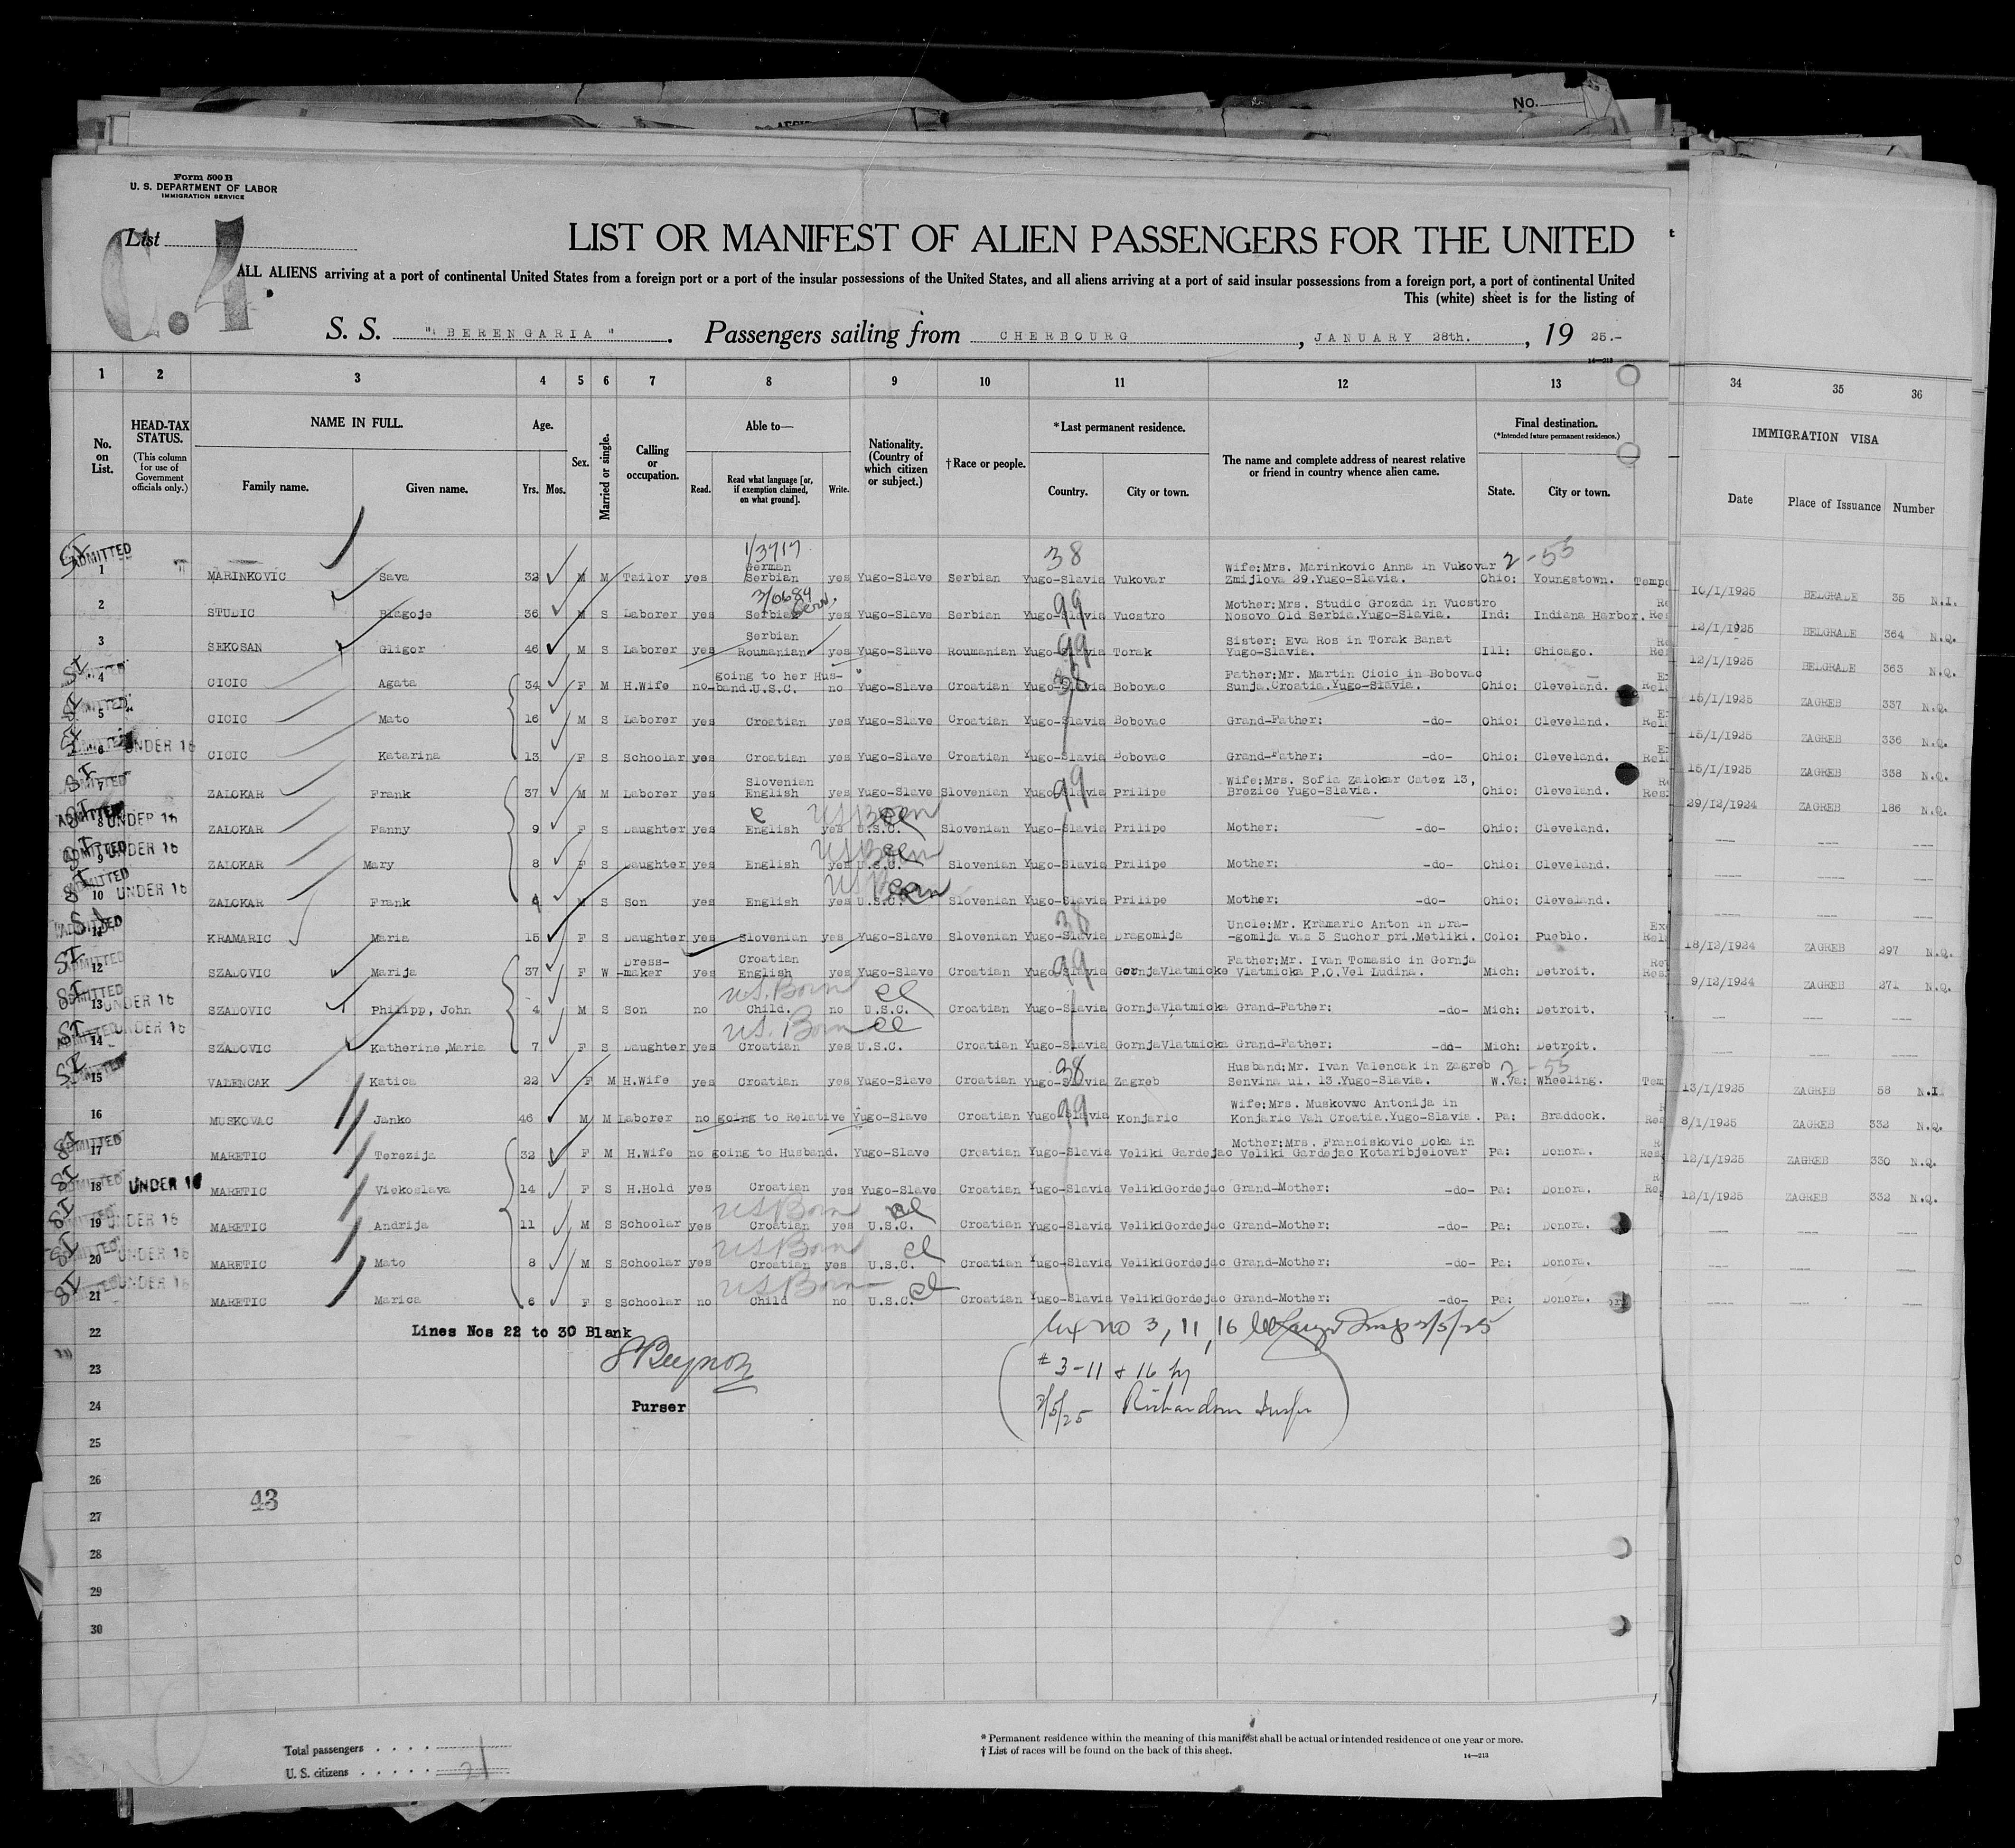 No.
Form 500 B
U. S. DEPARTMENT OF LABOR
IMMIGRATION SERVICE
List
C.4
LIST OR MANIFEST OF ALIEN PASSENGERS FOR THE UNITED
ALL ALIENS arriving at a port of continental United States from a foreign port or a port of the insular possessions of the United States, and all aliens arriving at a port of said insular possessions from a foreign port, a port of continental United
This (white) sheet is for the listing of
S. S. "BERENGARIA". Passengers sailing from CHERBOURG, JANUARY 28th., 19 25.-
14—213
1 2 3 4 5 6 7 8 9 10 11 12 13 34 35 36
No. on List.
HEAD-TAX STATUS.
(This column for use of Government officials only.)
NAME IN FULL.
Family name. Given name.
Age.
Yrs. Mos.
Sex.
Married or single.
Calling or occupation.
Able to—
Read. Read what language [or, if exemption claimed, on what ground]. Write.
Nationality. (Country of which citizen or subject.)
†Race or people.
*Last permanent residence.
Country. City or town.
The name and complete address of nearest relative or friend in country whence alien came.
Final destination.
(*Intended future permanent residence.)
State. City or town.
IMMIGRATION VISA
Date Place of Issuance Number
SI ADMITTED 1 MARINKOVIC Sava 32 M M Tailor yes German Serbian yes Yugo-Slave Serbian Yugo-Slavia 38 Vukovar Wife:Mrs. Marinkovic Anna in Vukovar Zmijlova 29.Yugo-Slavia. 2-55 Ohio: Youngstown. 10/1/1925 BELGRADE 35 N.I.
2 STUDIC Blagoje 36 M S Laborer yes Serbian yes Yugo-Slave Serbian Yugo-Slavia 99 Vucstro Mother:Mrs. Studic Grozda in Vucstro Nosovo Old Serbia.Yugo-Slavia. Ind: Indiana Harbor. 12/1/1925 BELGRADE 364 N.Q.
3 SEKOSAN Gligor 46 M S Laborer yes Serbian Roumanian yes Yugo-Slave Roumanian Yugo-Slavia 99 Torak Sister: Eva Ros in Torak Banat Yugo-Slavia. Ill: Chicago. 12/1/1925 BELGRADE 363 N.Q.
SI ADMITTED 4 CICIC Agata 34 F M H.Wife no going to her Hus-band.U.S.C. no Yugo-Slave Croatian Yugo-Slavia 38 Bobovac Father:Mr. Martin Cicic in Bobovac Sunja.Croatia.Yugo-Slavia. Ohio: Cleveland. 15/1/1925 ZAGREB 337 N.Q.
SI ADMITTED 5 CICIC Mato 16 M S Laborer yes Croatian yes Yugo-Slave Croatian Yugo-Slavia Bobovac Grand-Father: -do- Ohio: Cleveland. 15/1/1925 ZAGREB 336 N.Q.
SI ADMITTED 6 UNDER 16 CICIC Katarina 13 F S Schoolar yes Croatian yes Yugo-Slave Croatian Yugo-Slavia Bobovac Grand-Father: -do- Ohio: Cleveland. 15/1/1925 ZAGREB 338 N.Q.
SI ADMITTED 7 ZALOKAR Frank 37 M M Laborer yes Slovenian English yes Yugo-Slave Slovenian Yugo-Slavia 99 Prilipe Wife:Mrs. Sofia Zalokar Catez 13, Brezice Yugo-Slavia. Ohio: Cleveland. 29/12/1924 ZAGREB 186 N.Q.
SI ADMITTED 8 UNDER 16 ZALOKAR Fanny 9 F S Daughter yes English yes US Born U.S.C. Slovenian Yugo-Slavia Prilipe Mother: -do- Ohio: Cleveland.
SI ADMITTED 9 UNDER 16 ZALOKAR Mary 8 F S Daughter yes English yes US Born U.S.C. Slovenian Yugo-Slavia Prilipe Mother: -do- Ohio: Cleveland.
SI ADMITTED 10 UNDER 16 ZALOKAR Frank 4 M S Son yes English yes US Born U.S.C. Slovenian Yugo-Slavia Prilipe Mother: -do- Ohio: Cleveland.
SI ADMITTED 11 KRAMARIC Maria 15 F S Daughter yes Slovenian yes Yugo-Slave Slovenian Yugo-Slavia 38 Dragomlja Uncle:Mr. Kramaric Anton in Dra--gomlja vas 3 Suchor pri.Metliki. Colo: Pueblo. 18/12/1924 ZAGREB 297 N.Q.
SI ADMITTED 12 SZADOVIC Marija 37 F W Dress-maker yes Croatian English yes Yugo-Slave Croatian Yugo-Slavia 99 GornjaVlatmicke Father:Mr. Ivan Tomasic in Gornja Vlatmicka P.O.Vel Ludina. Mich: Detroit. 9/12/1924 ZAGREB 271 N.Q.
SI ADMITTED 13 UNDER 16 SZADOVIC Philipp, John 4 M S Son no U.S. Born Child. no U.S.C. Croatian Yugo-Slavia GornjaVlatmicka Grand-Father: -do- Mich: Detroit.
SI ADMITTED 14 UNDER 16 SZADOVIC Katherine,Maria 7 F S Daughter yes U.S. Born Croatian yes U.S.C. Croatian Yugo-Slavia GornjaVlatmicka Grand-Father: -do- Mich: Detroit.
SI ADMITTED 15 VALENCAK Katica 22 F M H.Wife yes Croatian yes Yugo-Slave Croatian Yugo-Slavia 38 Zagreb Husband:Mr. Ivan Valencak in Zagreb Senvina ul. 13.Yugo-Slavia. 2-55 W.Va: Wheeling. 13/1/1925 ZAGREB 58 N.I.
16 MUSKOVAC Janko 46 M M Laborer no going to Relative Yugo-Slave Croatian Yugo-Slavia 99 Konjaric Wife:Mrs. Muskovac Antonija in Konjaric Vah Croatia.Yugo-Slavia. Pa: Braddock. 8/1/1925 ZAGREB 332 N.Q.
SI ADMITTED 17 MARETIC Terezija 32 F M H.Wife no going to Husband. Yugo-Slave Croatian Yugo-Slavia Veliki Gardejac Mother:Mrs. Franciskovic Doka in Veliki Gardejac Kotaribjelovar Pa: Donora. 12/1/1925 ZAGREB 330 N.Q.
SI ADMITTED 18 UNDER 16 MARETIC Viekoslava 14 F S H.Hold yes Croatian yes Yugo-Slave Croatian Yugo-Slavia VelikiGordejac Grand-Mother: -do- Pa: Donora. 12/1/1925 ZAGREB 332 N.Q.
SI ADMITTED 19 UNDER 16 MARETIC Andrija 11 M S Schoolar yes US Born Croatian yes U.S.C. Croatian Yugo-Slavia VelikiGordejac Grand-Mother: -do- Pa: Donora.
SI ADMITTED 20 UNDER 16 MARETIC Mato 8 M S Schoolar yes US Born Croatian yes U.S.C. Croatian Yugo-Slavia VelikiGordejac Grand-Mother: -do- Pa: Donora.
SI ADMITTED 21 UNDER 16 MARETIC Marica 6 F S Schoolar no US Born Child no U.S.C. Croatian Yugo-Slavia VelikiGordejac Grand-Mother: -do- Pa: Donora.
22 Lines Nos 22 to 30 Blank no 3, 11, 16 2/5/25
23 # 3-11 & 16 by
24 Purser 2/5/25 Richardson
25
26
43
27
28
29
30
Total passengers . . . . 21
U. S. citizens . . . . .
*Permanent residence within the meaning of this manifest shall be actual or intended residence of one year or more.
†List of races will be found on the back of this sheet.
14—213